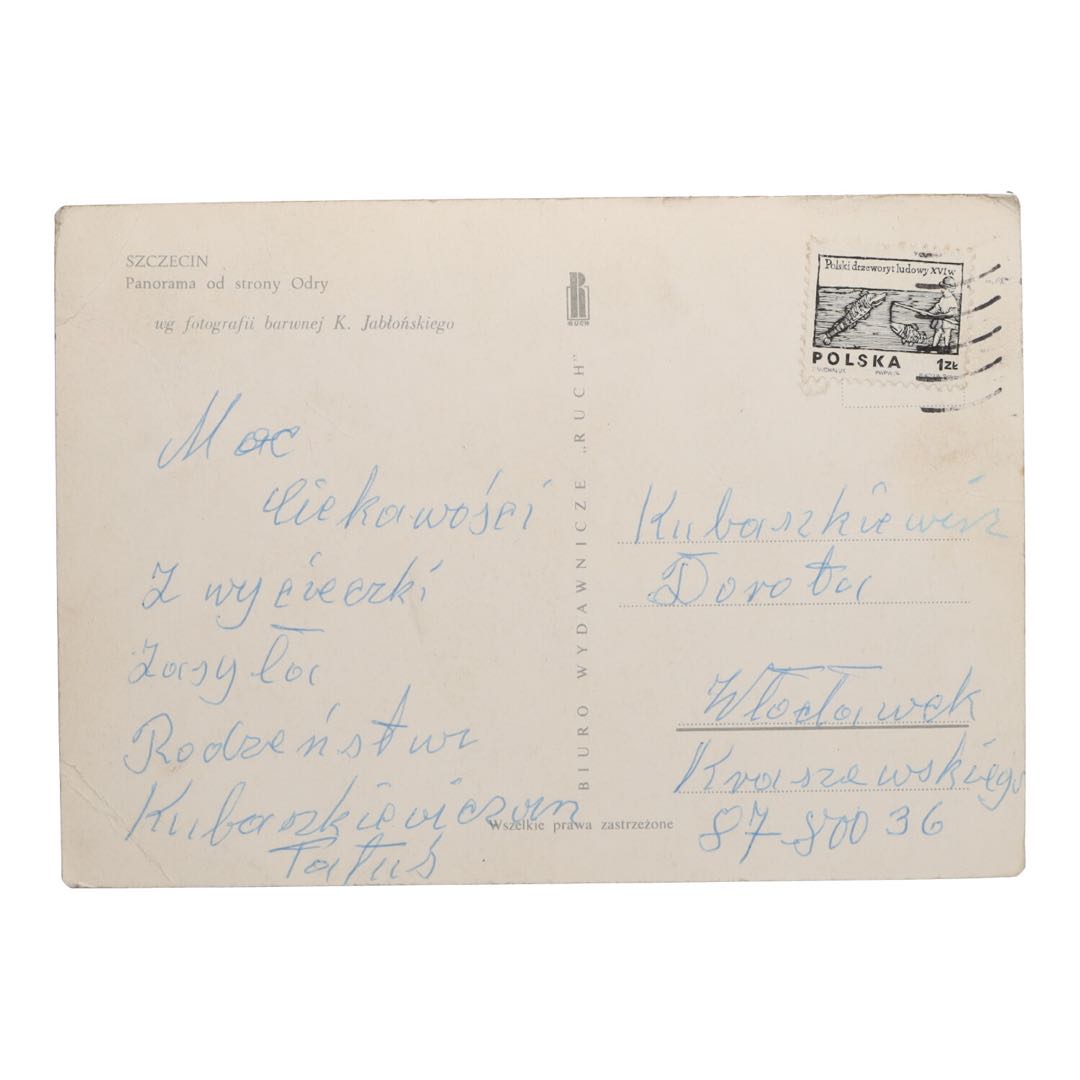 SZCZECIN
Panorama od strony Odry
wg fotografii barwnej K. Jabłońskiego
Moc
Ciekawości
Z wycieczki
Zasyła
Rodzeństwu
Tatuś
RUCH
BIURO WYDAWNICZE „RUCH"
Wszelkie prawa zastrzeżone
Polski drzeworyt ludowy XVI w
POLSKA 1ZŁ
Kubaszkiewicz
Dorota
Włocławek
Kraszewskiego
87-800 36